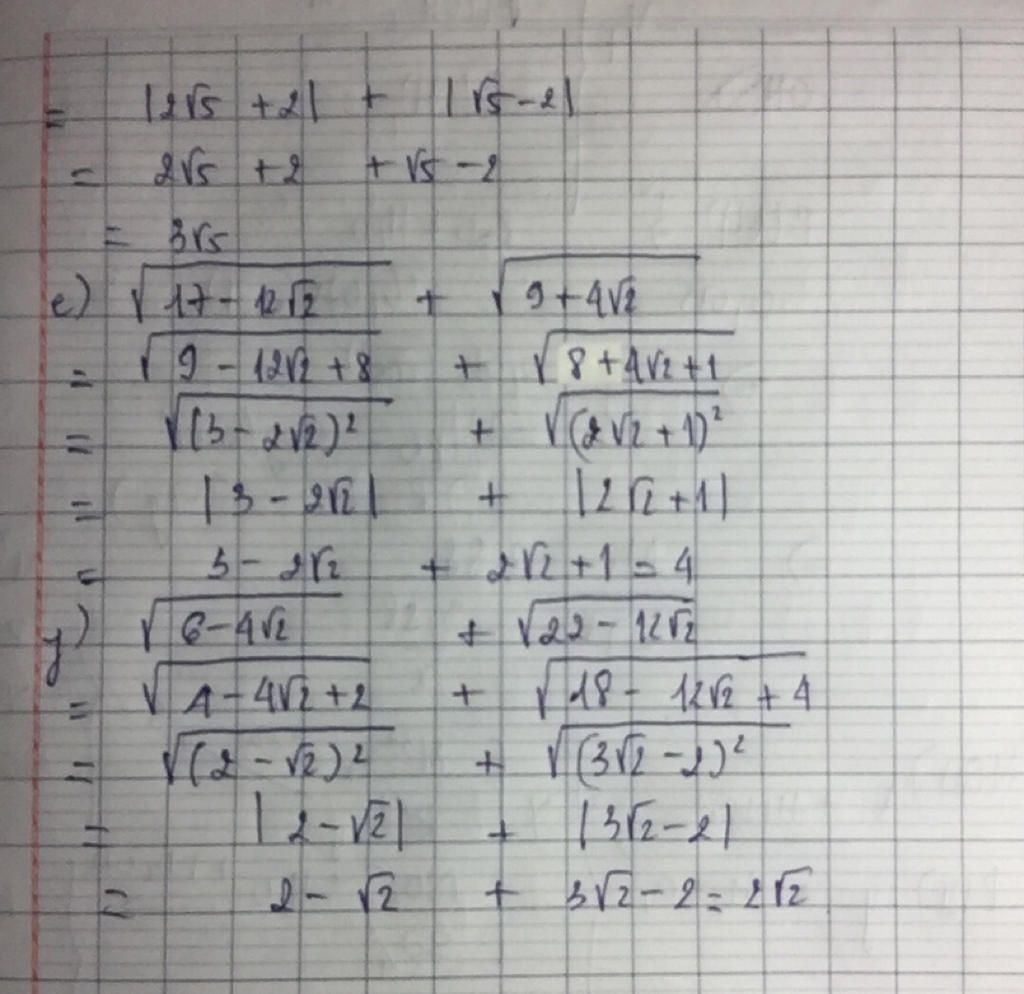 = |2√5 + 2| + |√5 - 2|
= 2√5 + 2 + √5 - 2
= 3√5
e) √(17 - 12√2) + √(9 + 4√2)
= √(9 - 12√2 + 8) + √(8 + 4√2 + 1)
= √((3 - 2√2)²) + √((2√2 + 1)²)
= |3 - 2√2| + |2√2 + 1|
= 3 - 2√2 + 2√2 + 1 = 4
y) √(6 - 4√2) + √(22 - 12√2)
= √(4 - 4√2 + 2) + √(18 - 12√2 + 4)
= √((2 - √2)²) + √((3√2 - 2)²)
= |2 - √2| + |3√2 - 2|
= 2 - √2 + 3√2 - 2 = 2√2